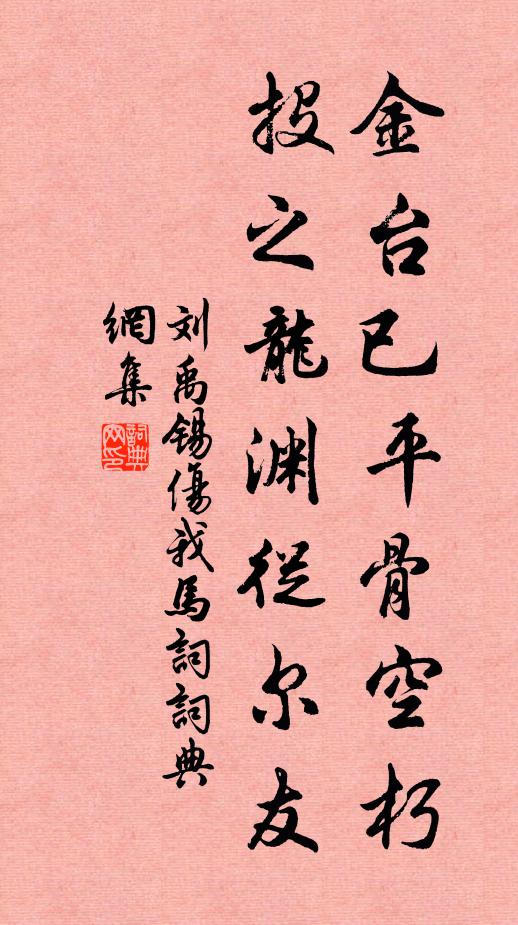 金台已平骨空朽
投之龍渊從尔友
刘禹锡傷我馬詞詞典
網集
詞典网印